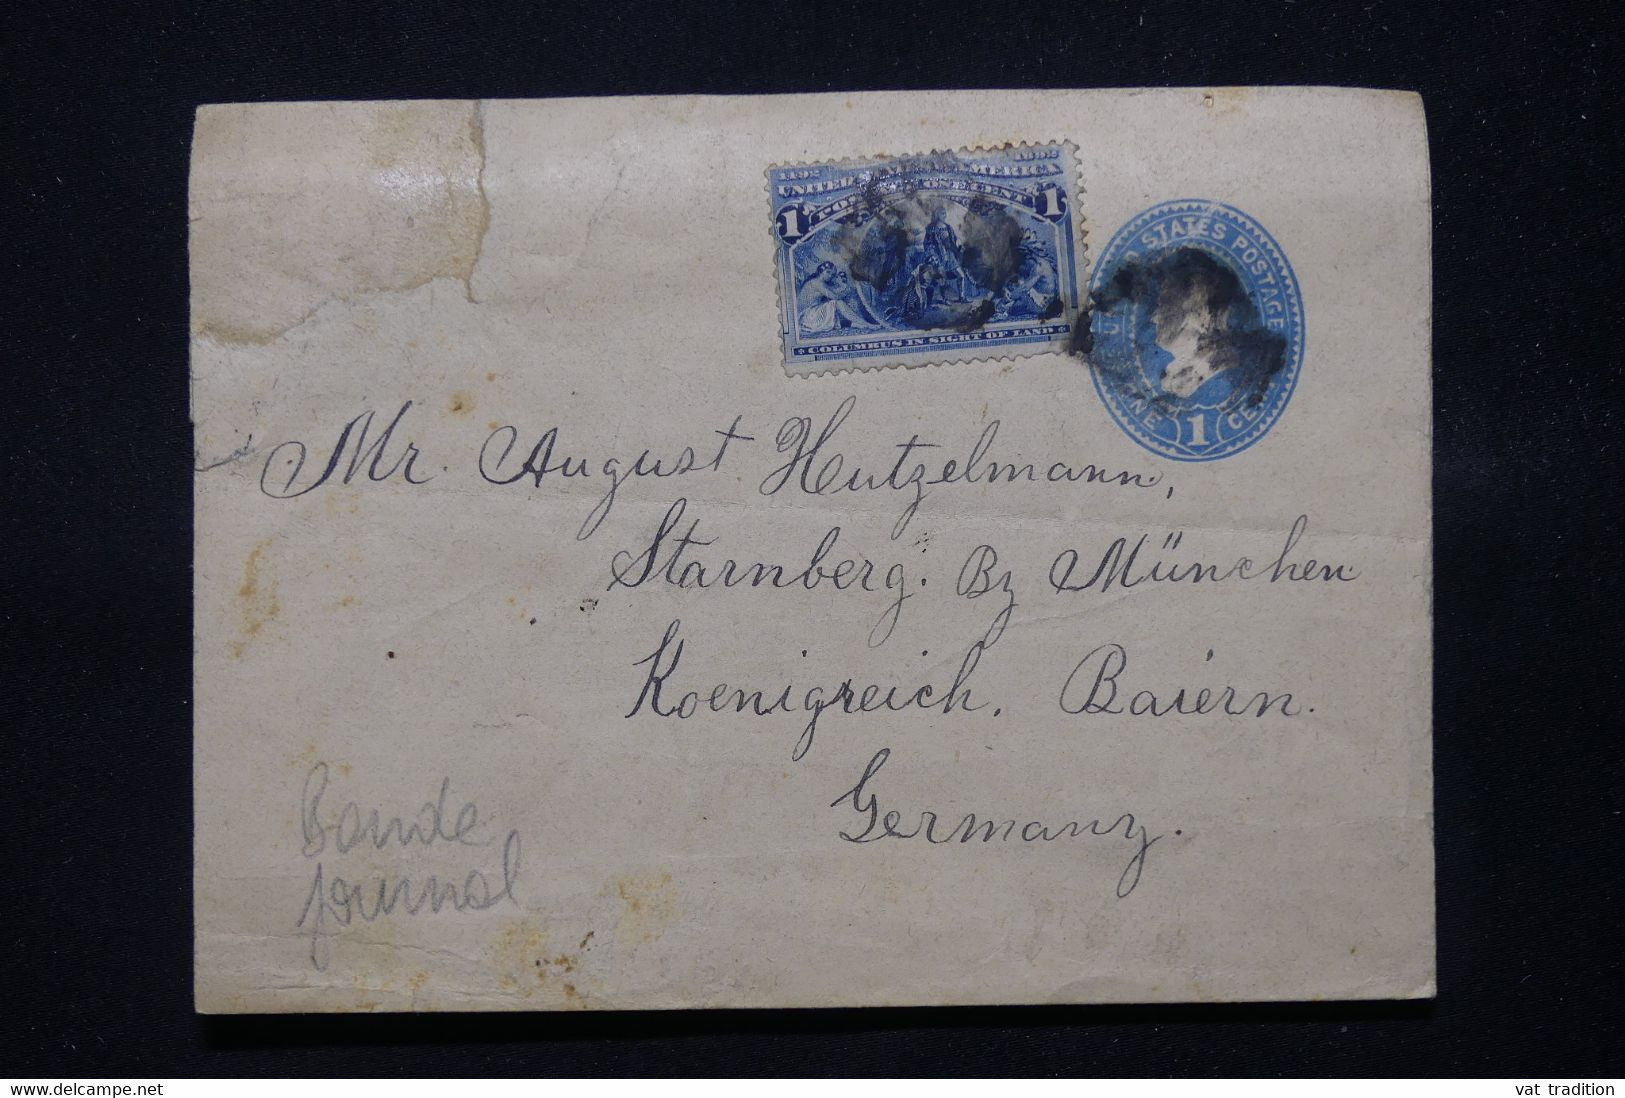 1492 1892
UNITED STATES OF AMERICA
POSTAGE ONE CENT
1 1
COLUMBUS IN SIGHT OF LAND
STATES POSTAGE
ONE 1 CE
Mr. August Hutzelmann,
Starnberg. Bz München
Koenigreich. Baiern.
Germany.
Bande
journal
delcampe.net
vat tradition